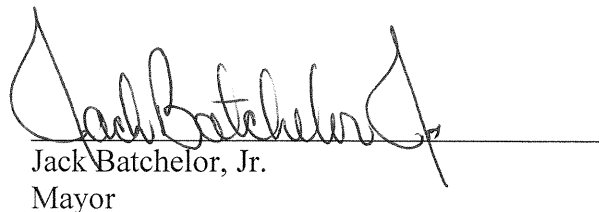 Jack Batchelor Jr.
Jack Batchelor, Jr.
Mayor